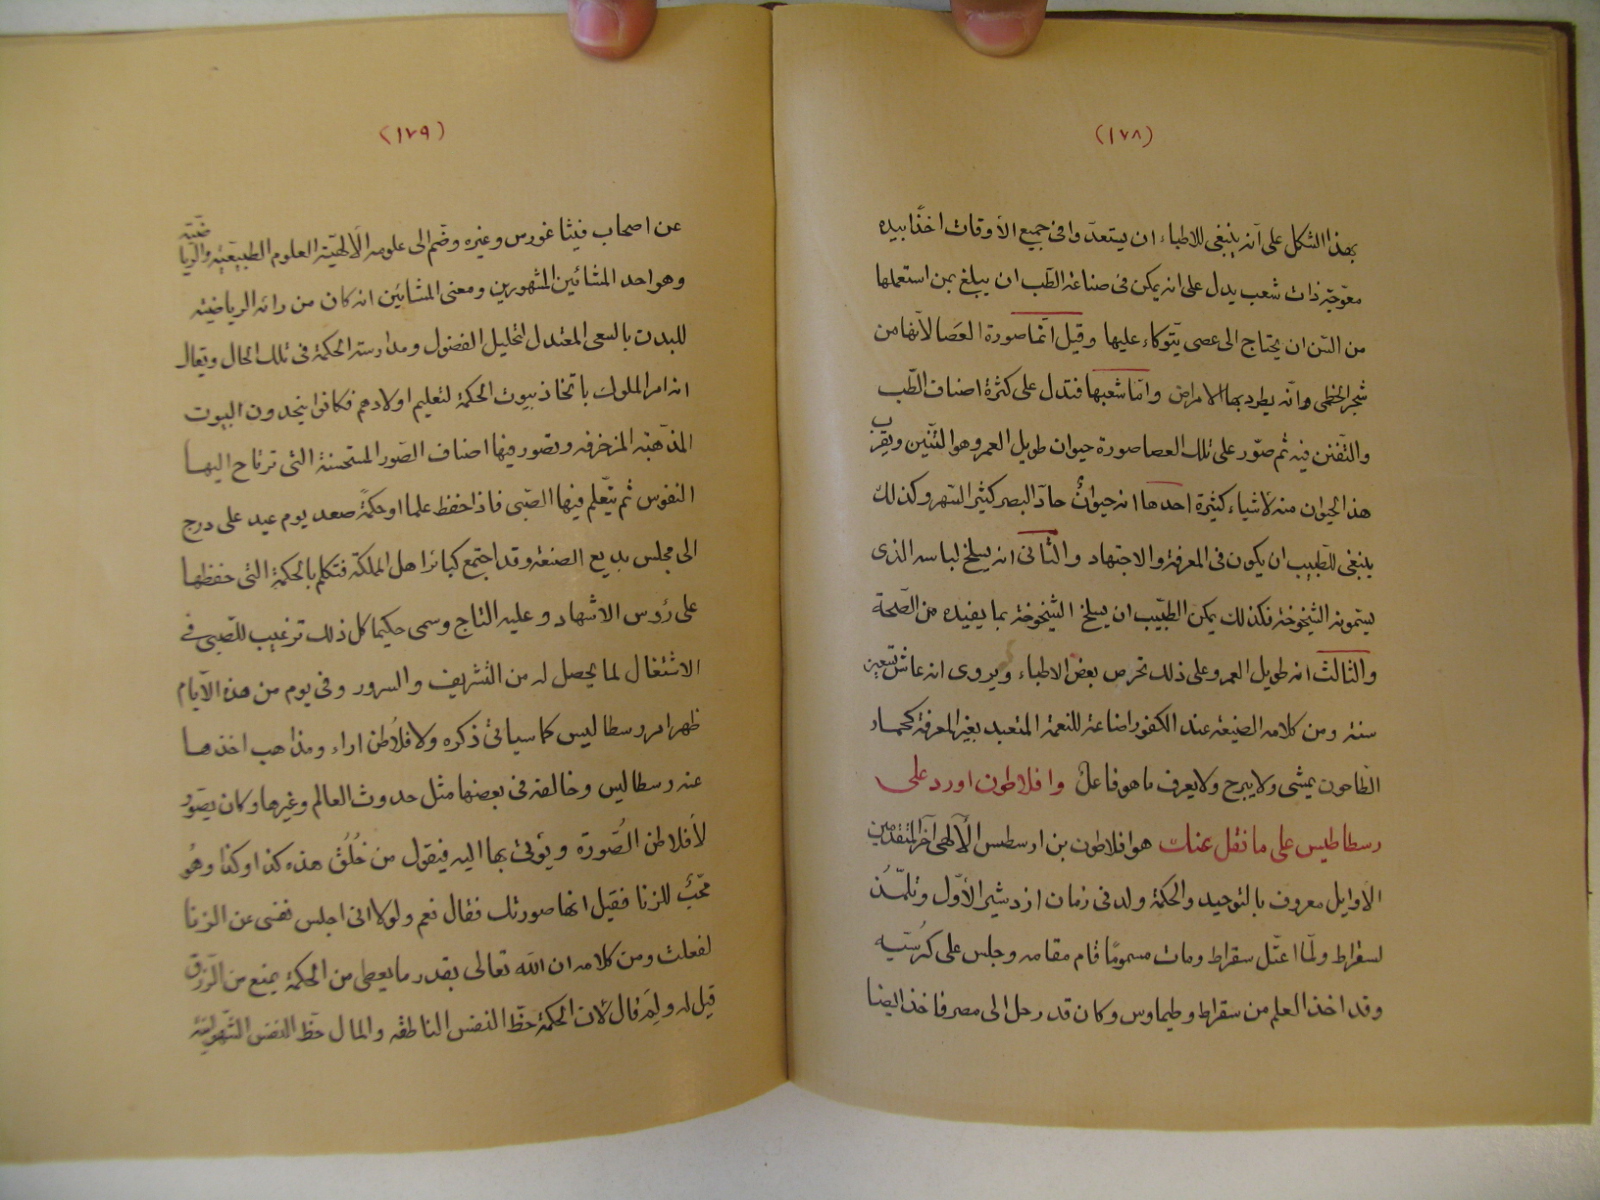 (١٧٨)
بهذا الشكل على أنه ينبغى للاطباء ان يستعدّوا فى جميع الأوقات اخذًا بيده
معوّجة ذات شعب يدل على انه يمكن فى صناعة الطّب ان يبلغ بمن استعملها
من السّن ان يحتاج الى عصى يتوكاء عليها وقيل انّما صورة العصا لأنها من
شجر الخطمى وانّه يطرد بها الامراض وامّا شعبها فتدل على كثرة اصناف الطّب
والتّفنن فيه ثم صوّر على تلك العصا صورة حيوان طويل العمر وهو التّنّين ويقرب
هذا الحيوان منه لأشياء كثيرة احدها انه حيوانٌ حادّ البصر كثير السّهر وكذلك
ينبغى للطّبيب ان يكون فى المعرفة والاجتهاد والثّانى انه يسلخ لباسه الذى
يسمونه الشّيخوخة فكذلك يمكن الطّبيب ان يسلخ الشّيخوخة بما يفيده من الصّحة
والثالث انه طويل العمر وعلى ذلك تحرص بعض الاطباء ويروى انه عاش تسعين
سنة ومن كلامه الصنيعة عند الكفور اضاعة للنعمة المتعبد بغير المعرفة كحمار
الطّاحون يمشى ولا يبرح ولا يعرف ما هو فاعل وافلاطون اورد على
رسطاطيس على ما نقل عنك هو افلاطون بن ارسطيس الآلهى آخر المتقدمين
الأوايل معروف بالتوحيد والحكمة ولد فى زمان ازدشير الأوّل وتلمّذ
لسقراط ولمّا اعتّل سقراط ومات مسمومًا قام مقامه وجلس على كرسيّه
وقد اخذ العلم من سقراط وطيماوس وكان قد رحل الى مصر فاخذ ايضا
(١٧٩)
عن اصحاب فيثاغورس وغيره وضّم الى علومه الآلهيّة العلوم الطبيعيّة والرياضيّة
وهو احد المشائين المشهورين ومعنى المشائين انه كان من رائه الرياضيّة
للبدن بالسعى المعتدل لتحليل الفضول ومدارسة الحكمة فى تلك الحال ويقال
انه امر الملوك باتخاذ بيوت الحكمة لتعليم اولادهم فكانوا يتخدون البيوت
المذهّبة المزخرفه وتصور فيها اصناف الصّور المستحسنة التى ترتاح اليها
النفوس ثم يتّعلم فيها الصّبى فاذا حفظ علما او حكمةً صعد يوم عيد على درج
الى مجلس بديع الصنعة وقد اجتمع كبائر اهل المملكة فتكلم بالحكمة التى حفظها
على رؤس الاشهاد وعليه التاج وسمى حكيما كل ذلك ترغيب للصّبى فى
الاشتغال لما يحصل له من التشريف والسرور وفى يوم من هذه الأيام
ظهر امر رسطاليس كما سياتى ذكره ولافلاطن اراء ومذاهب اخذها
عنه رسطاليس وخالفه فى بعضها مثل حدوث العالم وغيرها وكان يصوّر
لأفلاطن الصُورة ويؤتى بها اليه فيقول من خُلُق هذه كذا وكذا وهُو
محّبٌ للزنا فقيل انها صورتك فقال نعم ولولا انى احبس نفسى عن الزنا
لفعلت ومن كلامه ان الله تعالى بقدر ما يعطى من الحكمة يمنع من الرّزق
قيل له ولِمَ قال لأن الحكمة حظّ النفس الناطقه والمال حظّ النفس الشّهوانيّة